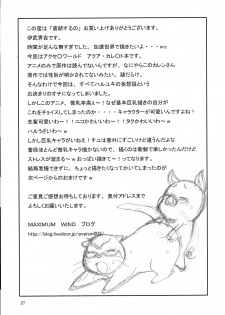 この度は「直結するの」お買い上げありがとうございます。
伊武秀吉です。
時間が足んな無すぎでした、加速世界で描きたいよ・・・orz
今回はアクセ〇ワールド アクア・カレン〇本です。
アニメのみで原作は読んでないんですが、なにやらこのカレンさん
原作では性別が明かされてないみたい。謎だらけ。
なので今回は、すべてハルユキの妄想話という
お決まりのオチになってしまいました。
しかしこのアニメ、微乳率高ぇ～！なぜ基本巨乳描きの自分が
これをチョイスしてしまったのか・・・キャラクターが可愛いんですよね！
先輩可愛いわ～！！ニコかわいいわ～！！タクかわいいわ～！
ハルうざいわ～ｗ
しかし巨乳キャラがいねえ！チユは意外にすごいけど違うんだよな
普段ほとんど微乳キャラ描かないので、描くのは新鮮で楽しかったんだけど
ストレスが溜まる～ｗ おっぱい描きて～！ってなってました。
結局我慢できずに、ちょっと描きたくなっていかいてしまったのが
次ページからのおまけですｗ
ご意見ご感想お待ちしております。奥付アドレスまで
よろしくお願いいたします。
MAXIMUM WIND ブログ
27